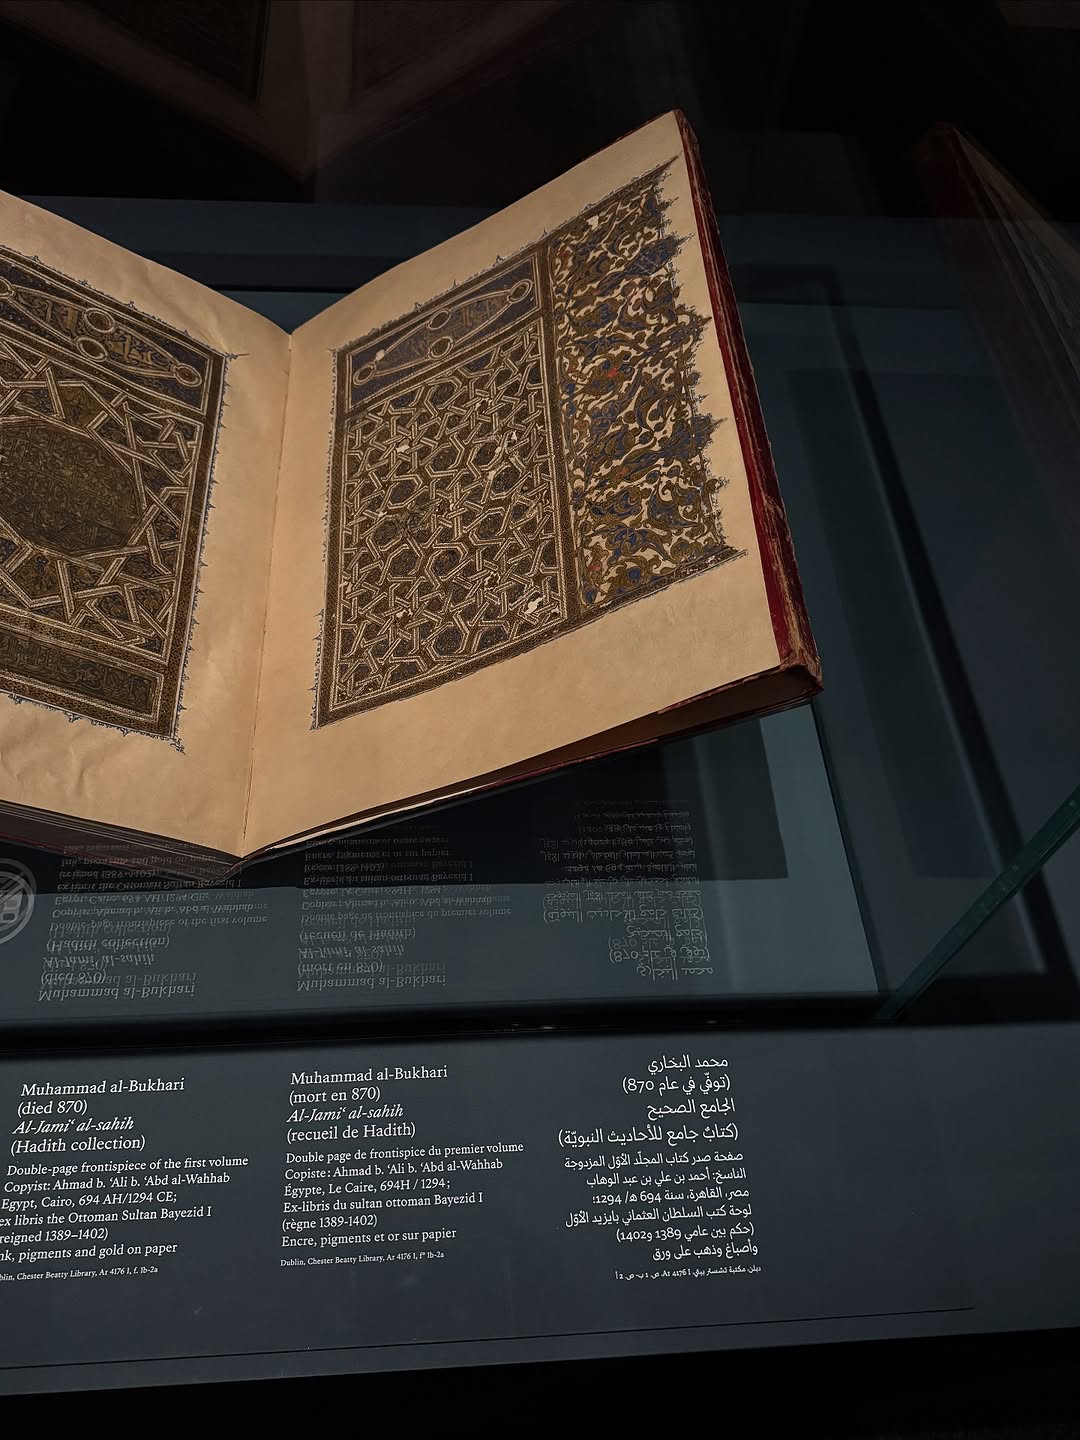 Muhammad al-Bukhari
(died 870)
Al-Jamiʿ al-sahih
(Hadith collection)
Double-page frontispiece of the first volume
Copyist: Ahmad b. ʿAli b. ʿAbd al-Wahhab
Egypt, Cairo, 694 AH/1294 CE;
ex libris the Ottoman Sultan Bayezid I
reigned 1389–1402)
nk, pigments and gold on paper
blin, Chester Beatty Library, Ar 4176 I, f. 1b-2a
Muhammad al-Bukhari
(mort en 870)
Al-Jamiʿ al-sahih
(recueil de Hadith)
Double page de frontispice du premier volume
Copiste : Ahmad b. ʿAli b. ʿAbd al-Wahhab
Égypte, Le Caire, 694H / 1294 ;
Ex-libris du sultan ottoman Bayezid I
(règne 1389-1402)
Encre, pigments et or sur papier
Dublin, Chester Beatty Library, Ar 4176 I, f° 1b-2a
محمد البخاري
(توفّي في عام 870)
الجامع الصحيح
(كتابٌ جامع للأحاديث النبويّة)
صفحة صدر كتاب المجلّد الأوّل المزدوجة
الناسخ: أحمد بن علي بن عبد الوهاب
مصر، القاهرة، سنة 694 هـ/ 1294؛
لوحة كتب السلطان العثماني بايزيد الأوّل
(حكم بين عامي 1389 و1402)
وأصباغ وذهب على ورق
دبلن، مكتبة تشستر بيتي، Ar 4176 I، ص. 1 ب- ص. 2 أ